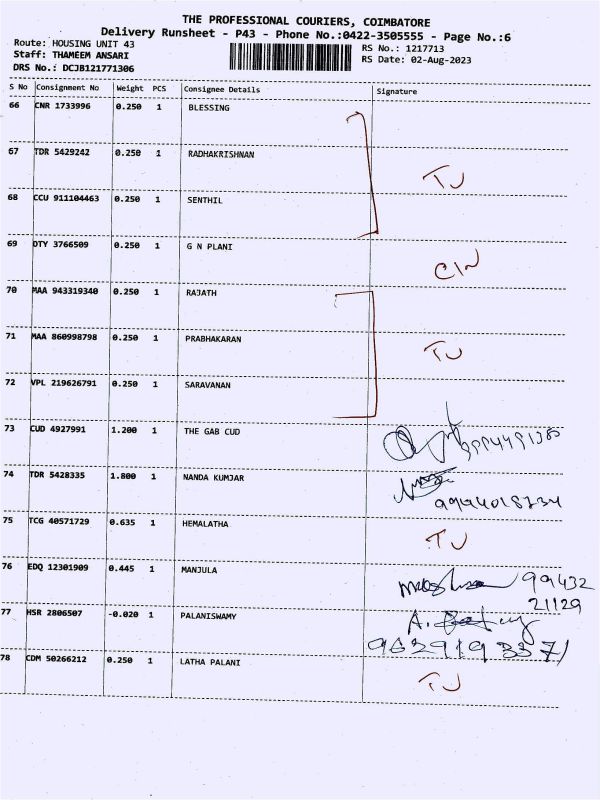 THE PROFESSIONAL COURIERS, COIMBATORE
Delivery Runsheet - P43 - Phone No.:0422-3505555 - Page No.:6
Route: HOUSING UNIT 43
RS No.: 1217713
Staff: THAMEEM ANSARI
RS Date: 02-Aug-2023
DRS No.: DCJB121771306
S No Consignment No Weight PCS Consignee Details Signature
66 CNR 1733996 0.250 1 BLESSING
67 TDR 5429242 0.250 1 RADHAKRISHNAN TU
68 CCU 911104463 0.250 1 SENTHIL
69 DTY 3766509 0.250 1 G N PLANI CIN
70 MAA 943319340 0.250 1 RAJATH
71 MAA 860998798 0.250 1 PRABHAKARAN TU
72 VPL 219626791 0.250 1 SARAVANAN
73 CUD 4927991 1.200 1 THE GAB CUD
74 TDR 5428335 1.800 1 NANDA KUMJAR
75 TCG 40571729 0.635 1 HEMALATHA TU
76 EDQ 12301909 0.445 1 MANJULA 99432
21129
77 HSR 2806507 -0.020 1 PALANISWAMY A.
78 CDM 50266212 0.250 1 LATHA PALANI TU